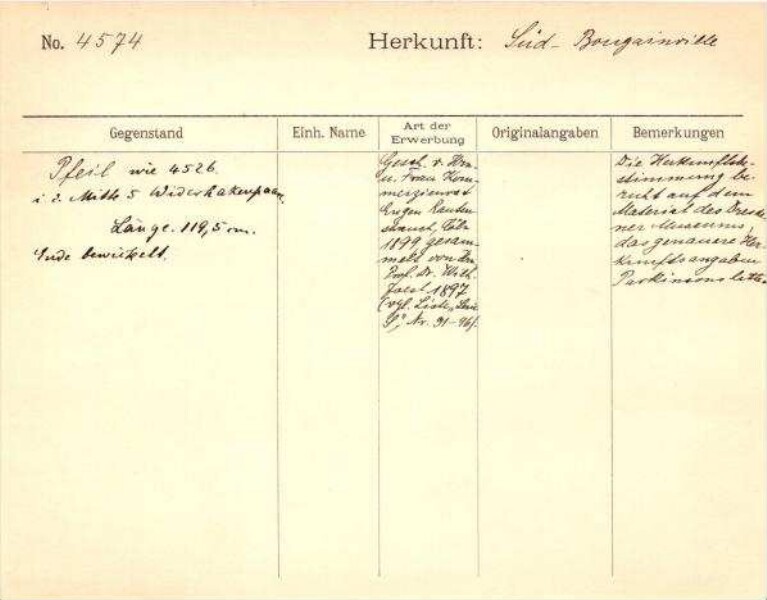 No. 4574
Herkunft: Süd-Bougainville
Gegenstand
Einh. Name
Art der Erwerbung
Originalangaben
Bemerkungen
Pfeil wie 4526.
i. d. Mitte 5 Widerhakenpaare,
Länge: 119,5 cm.
Ende bewickelt.
Gesch. v. Hrn
u. Frau Kom-
merzienrat
Eugen Rauten-
strauch, Cöln
1899, gesam-
melt von Hrn
Prof. Dr. Wilh.
Joest 1897
(vgl. Liste
S", Nr. 91-96).
Die Herkunftsbe-
stimmung be-
ruht auf dem
Material des Dresde-
ner Museums,
das genauere Her-
kunftsangaben
Parkinsons